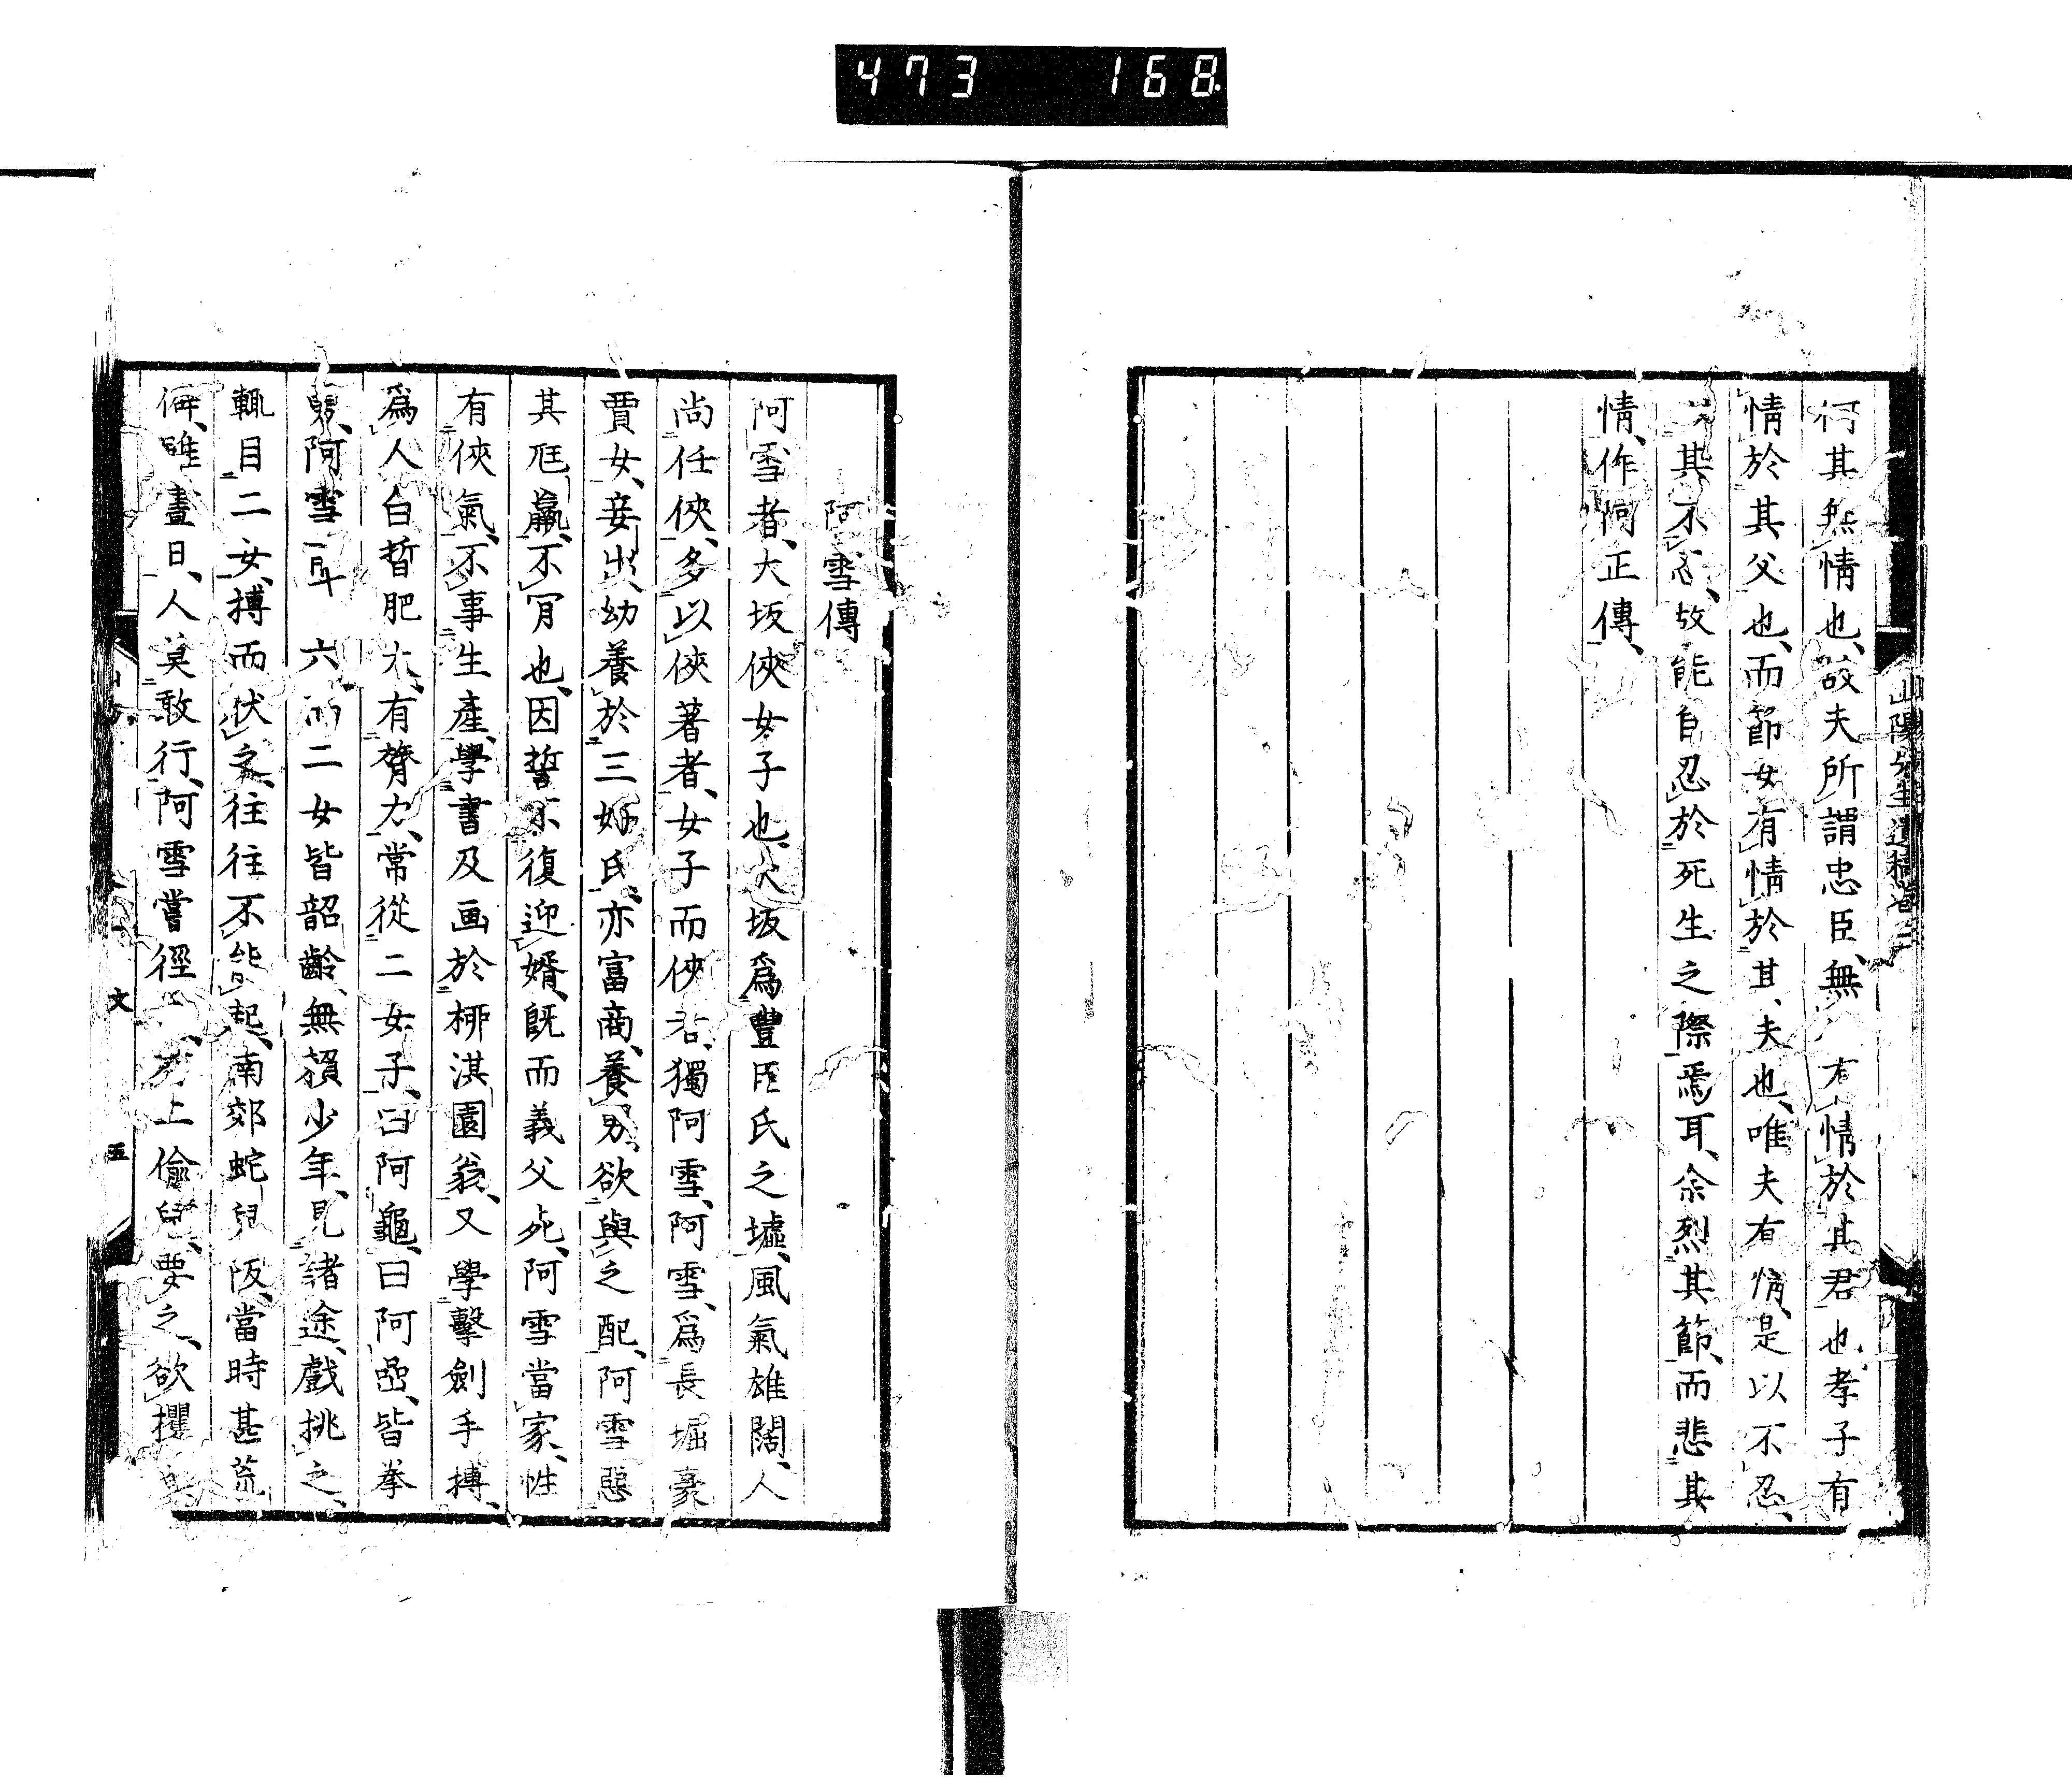 473 168
山陽先生遺稿卷三
何其無情也、故夫所謂忠臣、無 有情於其君也孝子有
情於其父也、而節女有情於其夫也、唯夫有情、是以不忍、
其不忍、故能自忍於死生之際焉耳、余烈其節、而悲其
情、作阿正傳、
阿雪傳
阿雪者、大坂俠女子也、大坂爲豐臣氏之墟、風氣雄闊、人
尚任俠、多以俠著者、女子而俠者、獨阿雪、阿雪、爲長堀豪
賈女、妾出、幼養於三好氏、亦富商、養男、欲與之配、阿雪惡
其尫羸、不肯也、因誓不復迎婿、既而義父死、阿雪當家、性
有俠氣、不事生產、學書及画於柳淇園翁、又學擊劍手搏、
爲人白晳肥大、有膂力、常從二女子、曰阿龜、曰阿嵒、皆拳
阿雪 六 二女皆韶齡、無賴少年、見諸途、戲挑之、
輒目二女、搏而伏之、往往不能起、南郊蛇兒阪、當時甚荒
僻、雖晝日、人莫敢行、阿雪嘗徑 上偷兒、要之、欲攫
文 五